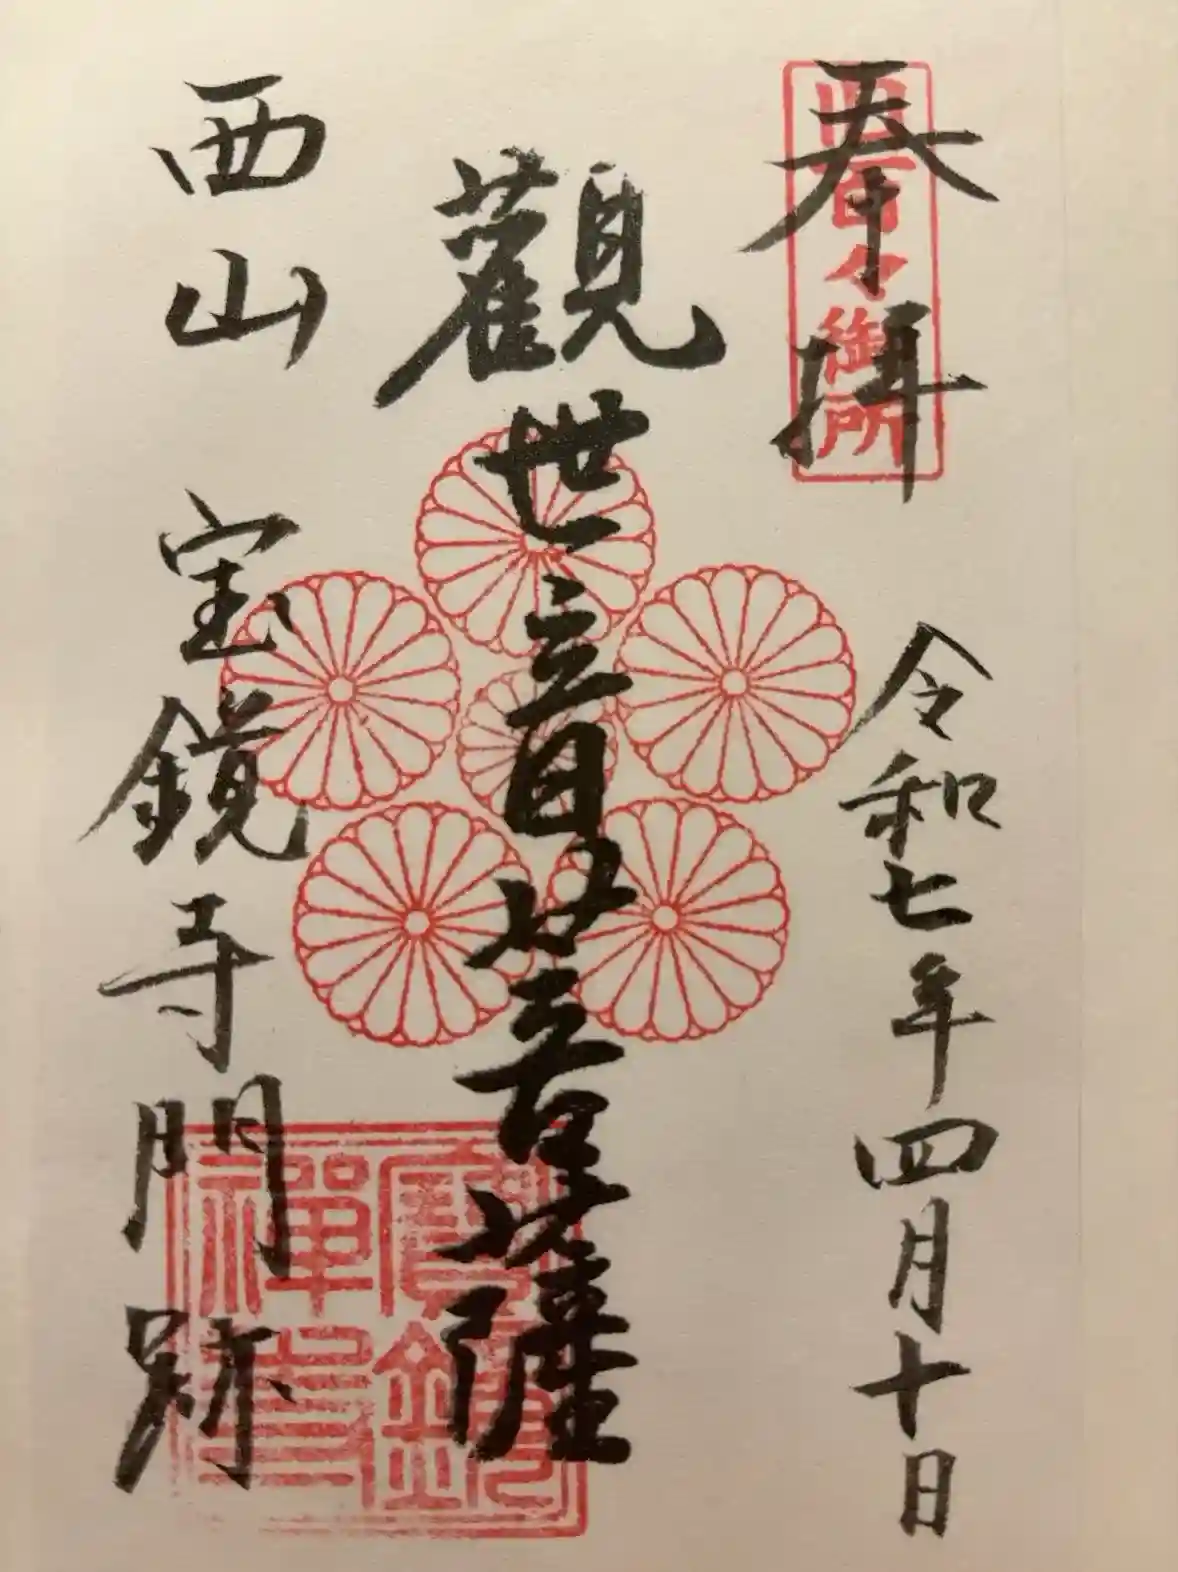 奉拝
百々御所
令和七年四月十日
觀世音菩薩
西山 宝鏡寺門跡
寳鏡禅寺